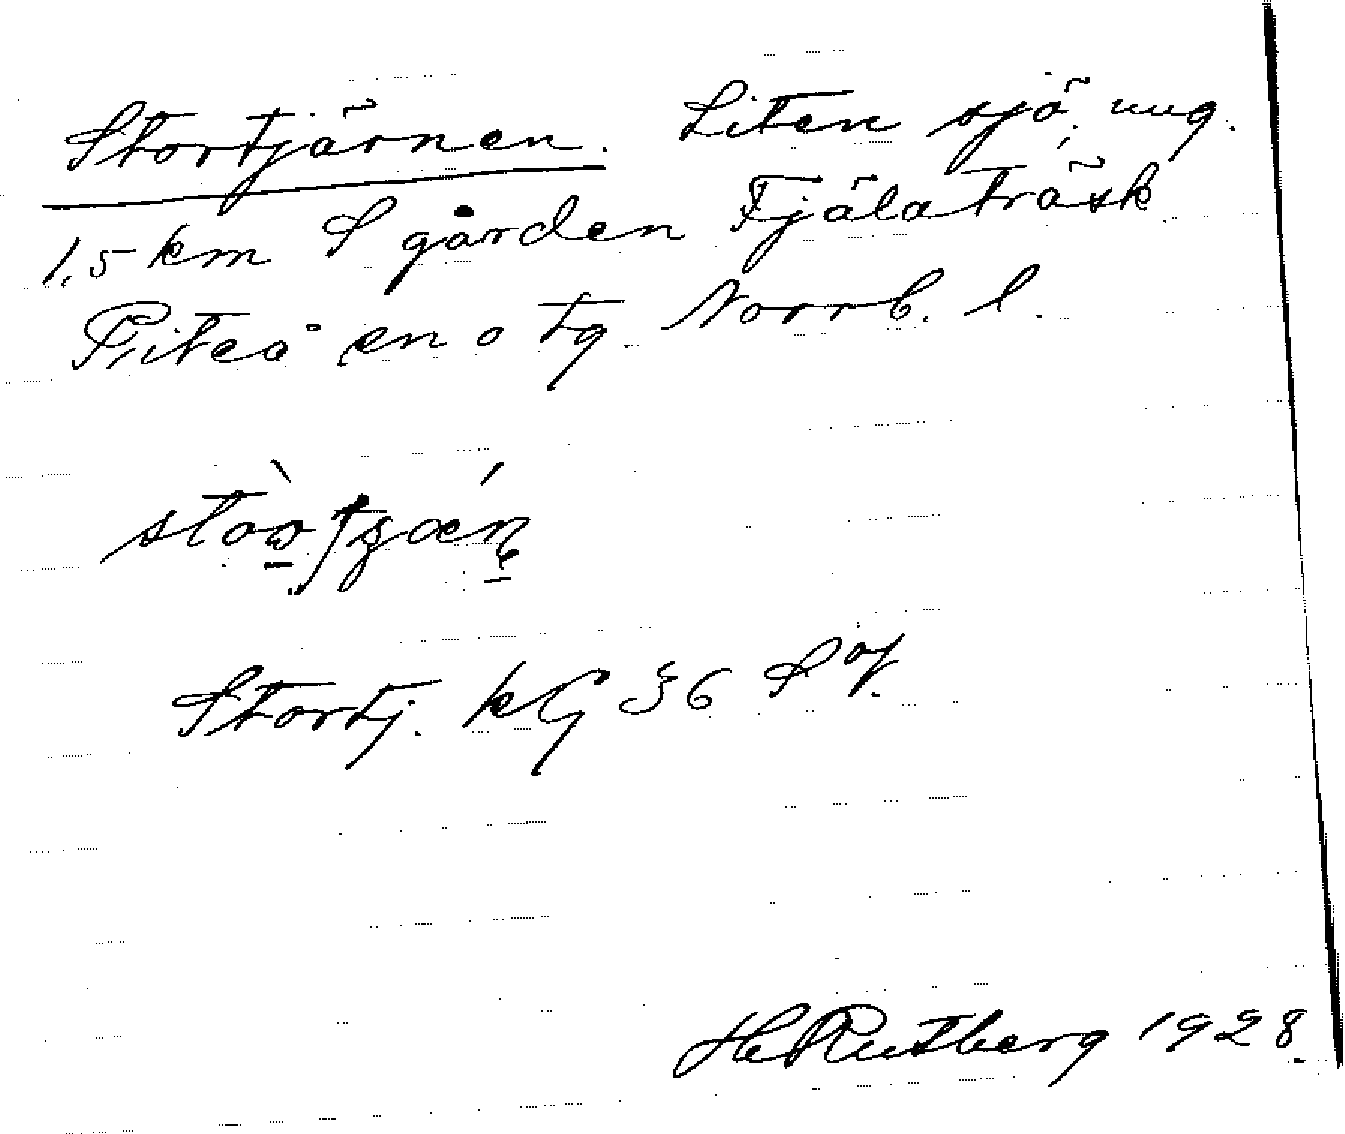 Stortjärnen. Liten sjö, ung.
1,5 km S gården Fjälaträsk
Piteå sn o tg Norrb. l.
Stortj. kG 36 SV.
H Rutberg 1928.